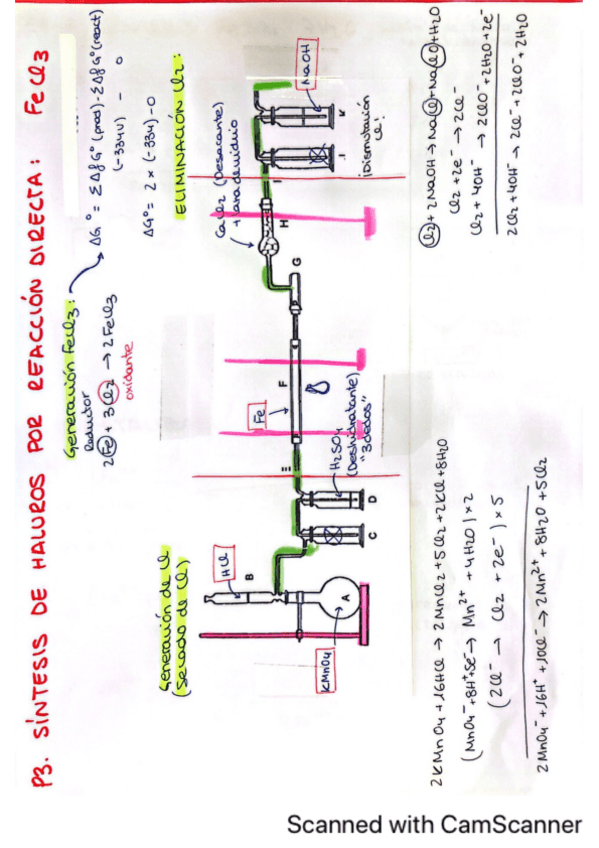 P3. SÍNTESIS DE HALUROS POR REACCIÓN DIRECTA: FeCl3
Generación FeCl3:
Reductor
2Fe + 3Cl2 → 2FeCl3
oxidante
ΔG° = ΣΔfG°(prod) - ΣΔfG°(react)
(-334) - 0
ΔG° = 2 x (-334) - 0
ELIMINACIÓN Cl2:
Generación de Cl
(Secado de Cl)
HCl
B
A
KMnO4
C
D
H2SO4
(Deshidratante)
"3 dedos"
E
Fe
F
G
CaCl2 (Desecante)
+ lana de vidrio
H
I
J
K
NaOH
¡Dismutación
Cl!
2KMnO4 + 16HCl → 2MnCl2 + 5Cl2 + 2KCl + 8H2O
(MnO4⁻ + 8H⁺ + 5e⁻ → Mn²⁺ + 4H2O) x 2
(2Cl⁻ → Cl2 + 2e⁻) x 5
2MnO4⁻ + 16H⁺ + 10Cl⁻ → 2Mn²⁺ + 8H2O + 5Cl2
Cl2 + 2NaOH → NaCl + NaClO + H2O
Cl2 + 2e⁻ → 2Cl⁻
Cl2 + 4OH⁻ → 2ClO⁻ + 2H2O + 2e⁻
2Cl2 + 4OH⁻ → 2Cl⁻ + 2ClO⁻ + 2H2O
Scanned with CamScanner